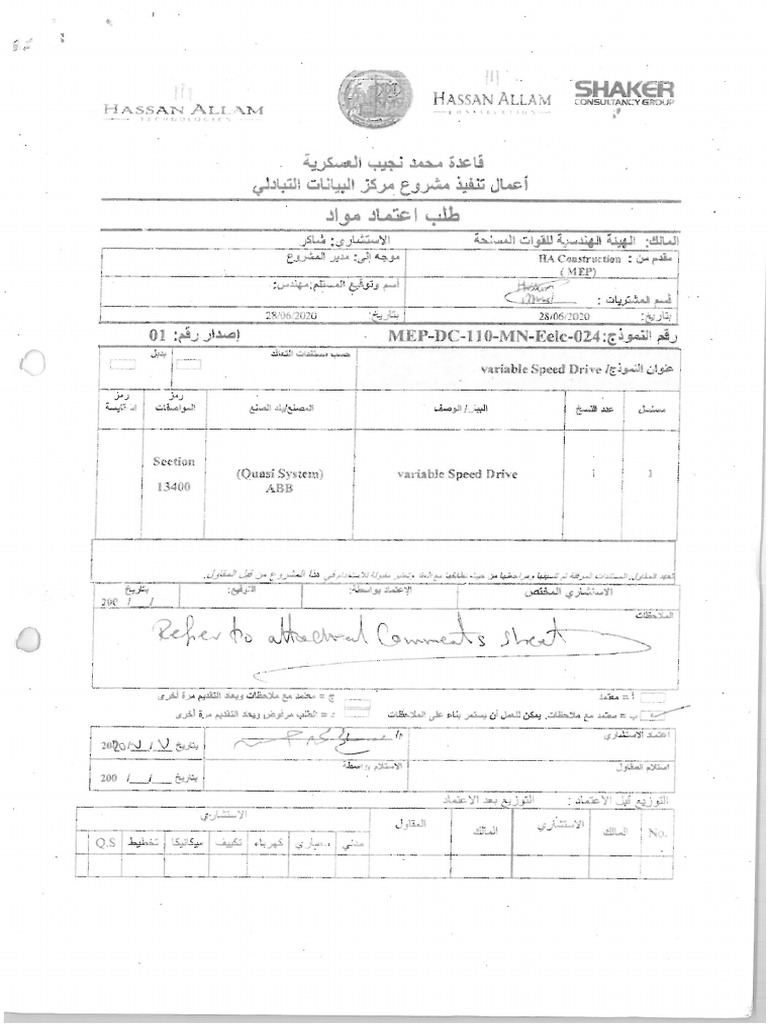 HASSAN ALLAM
TECHNOLOGIES
HASSAN ALLAM
CONSTRUCTION
SHAKER
CONSULTANCY GROUP
قاعدة محمد نجيب العسكرية
أعمال تنفيذ مشروع مركز البيانات التبادلي
طلب اعتماد مواد
المالك: الهيئة الهندسية للقوات المسلحة الاستشاري: شاكر
مقدم من : HA Construction ( MEP) موجه إلى: مدير المشروع
قسم المشتريات : اسم وتوقيع المستلم:مهندس:
بتاريخ: 28/06/2020 بتاريخ: 28/06/2020
رقم النموذج:MEP-DC-110-MN-Eelc-024 إصدار رقم: 01
عنوان النموذج/ variable Speed Drive حسب مستندات التعاقد بديل
مسلسل عدد النسخ البيان/ الوصف المصنع/بلد الصنع رمز المواصفات رمز
1 1 variable Speed Drive (Quasi System) ABB Section 13400
الاستشاري المختص الإعتماد بواسطة: التوقيع: بتاريخ / / 200
الملاحظات
Refer to attached Comments sheet
أ = معتمد ج = معتمد مع ملاحظات ويعاد التقديم مرة أخرى
ب = معتمد مع ملاحظات. يمكن للعمل أن يستمر بناء على الملاحظات د = الطلب مرفوض ويعاد التقديم مرة أخرى
اعتماد الاستشاري بتاريخ
استلام المقاول الاستلام بواسطة بتاريخ / / 200
التوزيع قبل الاعتماد : التوزيع بعد الاعتماد
No. المالك الاستشاري المالك المقاول الاستشاري
مدني معماري كهرباء تكييف ميكانيكا تخطيط Q.S